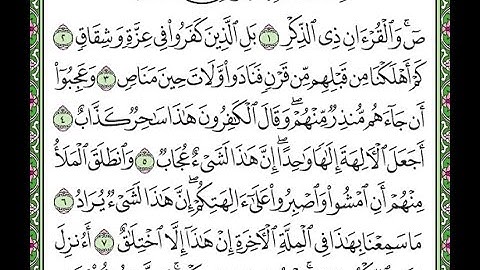 صٓ ۚ وَٱلْقُرْءَانِ ذِى ٱلذِّكْرِ ١ بَلِ ٱلَّذِينَ كَفَرُوا۟ فِى عِزَّةٍ وَشِقَاقٍ ٢
كَمْ أَهْلَكْنَا مِن قَبْلِهِم مِّن قَرْنٍ فَنَادَوا۟ وَّلَاتَ حِينَ مَنَاصٍ ٣ وَعَجِبُوٓا۟
أَن جَآءَهُم مُّنذِرٌ مِّنْهُمْ ۖ وَقَالَ ٱلْكَٰفِرُونَ هَٰذَا سَٰحِرٌ كَذَّابٌ ٤
أَجَعَلَ ٱلْءَالِهَةَ إِلَٰهًا وَٰحِدًا ۖ إِنَّ هَٰذَا لَشَىْءٌ عُجَابٌ ٥ وَٱنطَلَقَ ٱلْمَلَأُ
مِنْهُمْ أَنِ ٱمْشُوا۟ وَٱصْبِرُوا۟ عَلَىٰٓ ءَالِهَتِكُمْ ۖ إِنَّ هَٰذَا لَشَىْءٌ يُرَادُ ٦
مَا سَمِعْنَا بِهَٰذَا فِى ٱلْمِلَّةِ ٱلْءَاخِرَةِ إِنْ هَٰذَآ إِلَّا ٱخْتِلَٰقٌ ٧ أَءُنزِلَ